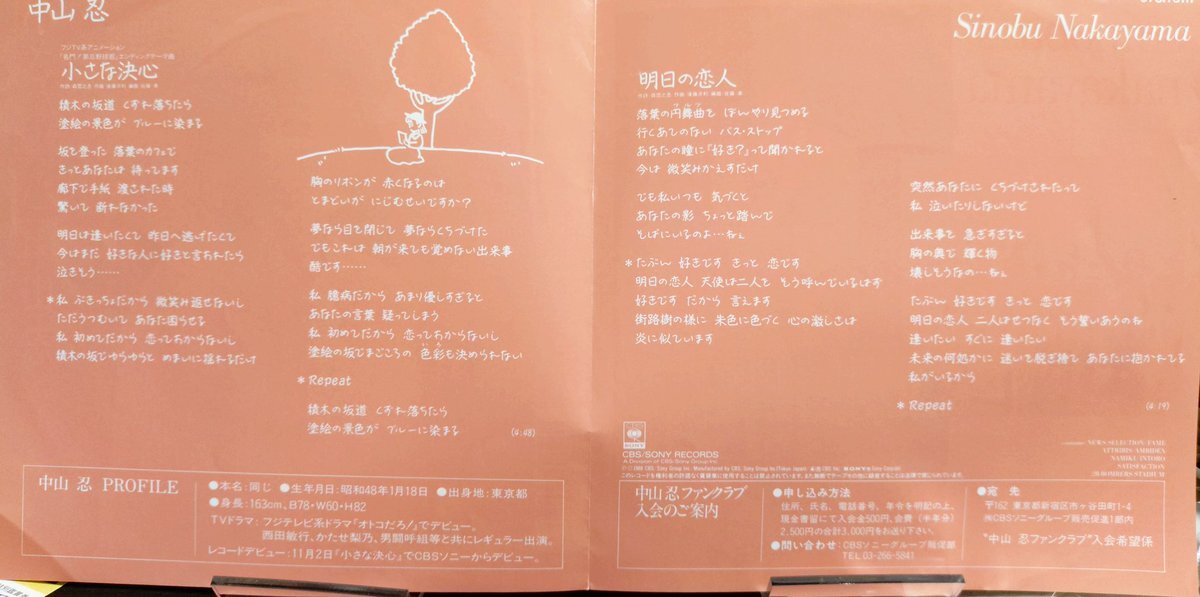 中山 忍
フジTV系アニメーション
「名門!第三野球部」エンディングテーマ曲
小さな決心
積木の坂道 くずれ落ちたら
塗絵の景色が ブルーに染まる
坂を登った 落葉のカフェで
きっとあなたは 待ってます
廊下で手紙 渡された時
驚いて 断れなかった
明日は逢いたくて 昨日へ逃げたくて
今はまだ 好きな人に好きと言われたら
泣きそう……
*私 ぶきっちょだから 微笑み返せないし
ただうつむいて あなた困らせる
私 初めてだから 恋っておからないし
積木の坂でゆらゆらと めまいに揺れるだけ
胸のリボンが 赤くなるのは
とまどいが にじむせいですか?
夢なら目を閉じて 夢ならくちづけた
でもこれは 朝が来ても覚めない出来事
酷です……
私 臆病だから あまり優しすぎると
あなたの言葉 疑ってしまう
私 初めてだから 恋っておからないし
塗絵の坂でまごころの 色彩も決められない
いろ
*Repeat
積木の坂道 くずれ落ちたら
塗絵の景色が ブルーに染まる
(4:48)
中山 忍 PROFILE
●本名:同じ ●生年月日:昭和48年1月18日 ●出身地:東京都
●身長:163cm、B78・W60・H82
TVドラマ:フジテレビ系ドラマ「オトコだろ!」でデビュー。
西田敏行、かたせ梨乃、男闘呼組等と共にレギュラー出演。
レコードデビュー:11月2日『小さな決心』でCBSソニーからデビュー。
Sinobu Nakayama
明日の恋人
ワルツ
落葉の円舞曲を ぼんやり見つめる
行くあてのない バス・ストップ
あなたの瞳に「好き?」って聞かれると
今は 微笑みかえすだけ
でも私いつも 気づくと
あなたの影 ちょっと踏んで
そばにいるのよ…ねぇ
*たぶん 好きです きっと 恋です
明日の恋人 天使は二人を そう呼んでいるはず
好きです だから 言えます
街路樹の様に 朱色に色づく 心の激しさは
炎に似ています
突然あなたに くちづけされたって
私 泣いたりしないけど
出来事を 急ぎすぎると
胸の奥で 輝く物
壊しそうなの…ねぇ
たぶん 好きです きっと 恋です
明日の恋人 二人はせつなく もう誓いあうのね
逢いたい すぐに 逢いたい
未来の何処かに 迷いを脱ぎ捨て あなたに抱かれてる
私がいるから
*Repeat
(4:19)
SONY
CBS/SONY RECORDS
A Division of CBS/Sony Group Inc.
NEWS SELECTION/FAME
NAMIKI/INTORO
SATISFACTION
BOMBERS STADIUM
中山 忍ファンクラブ
入会のご案内
●申し込み方法
住所、氏名、電話番号、年令を明記の上、
現金書留にて入会金500円、会費(半年分)
2,500円の合計3,000円をお送り下さい。
●問い合わせ:CBSソニーグループ販促部
TEL.03-266-5841
●宛 先
〒162 東京都新宿区市ヶ谷田町1-4
㈱CBSソニーグループ販売促進1部内
“中山 忍ファンクラブ”入会希望係